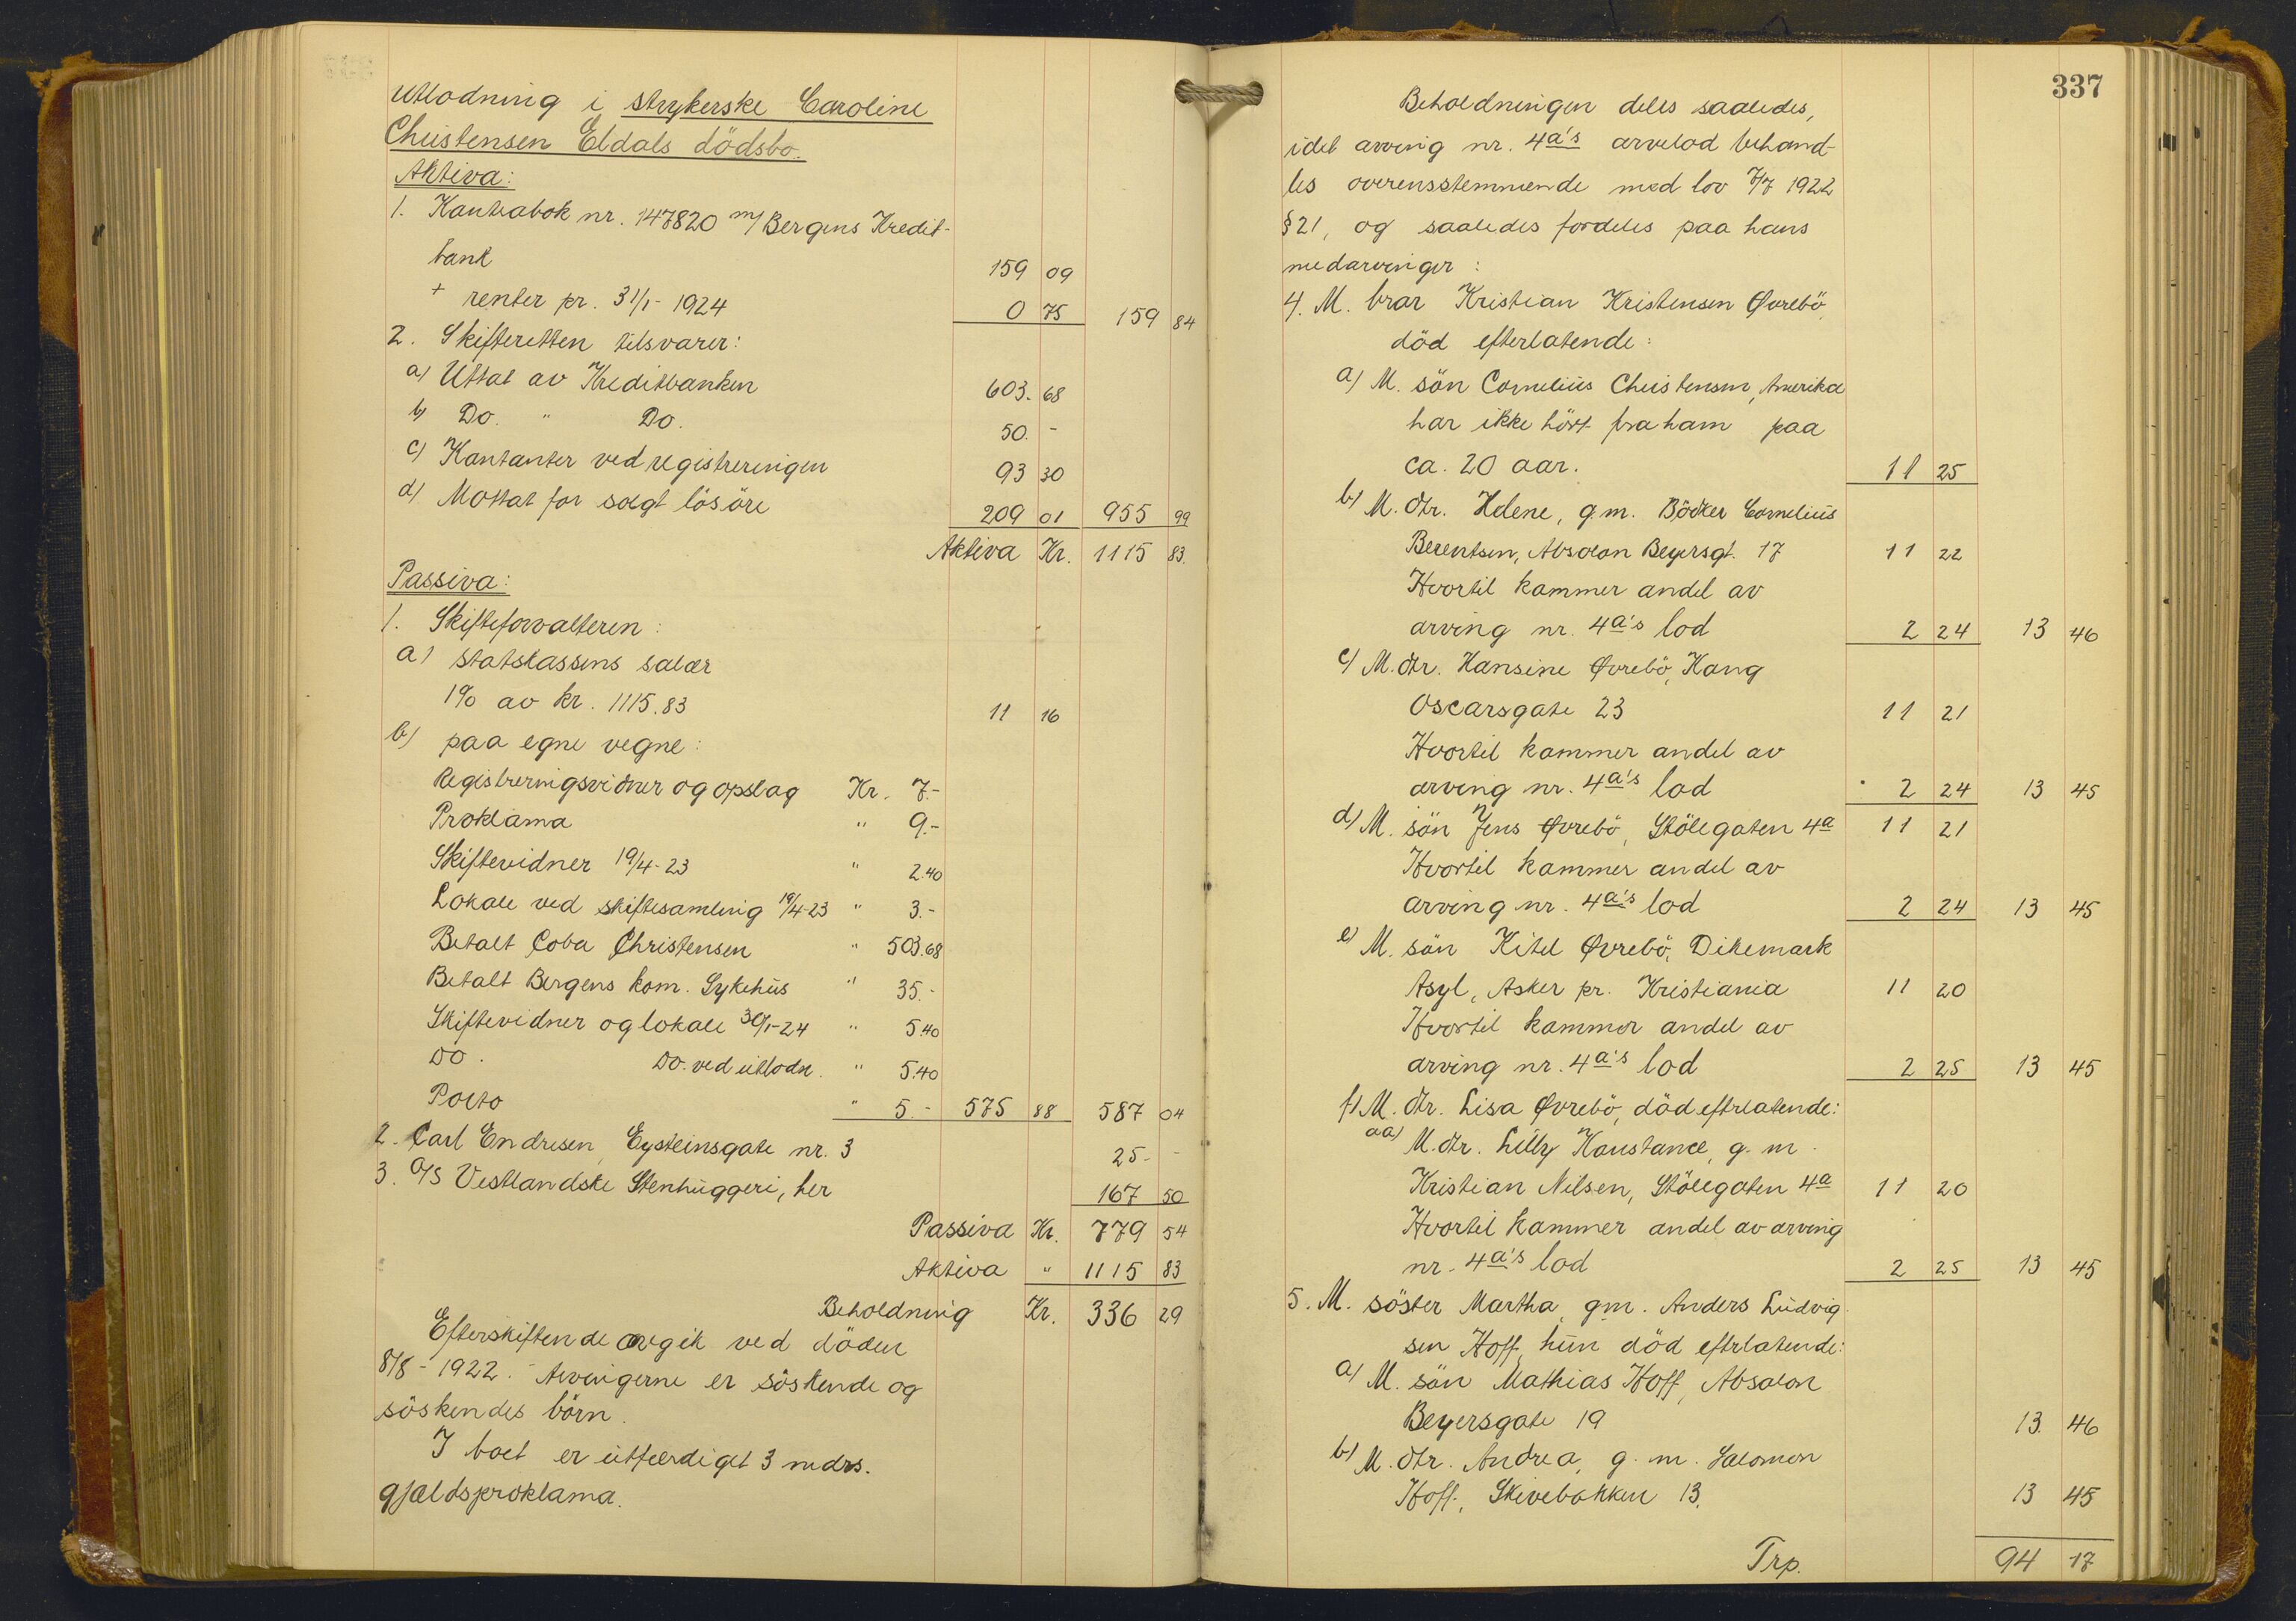 Utlodning i strykerske Caroline
Christensen Eldals dödsbo.
Aktiva:
1. Kontrabok nr. 147820 m/ Bergens Kredit-
bank 159 09
+ renter pr. 31/1 - 1924 0 75 159 84
2. Skifteretten tilsvarer:
a) Uttat av Kreditbanken 603. 68
b) Do. " Do. 50. -
c) Kontanter ved registreringen 93 30
d) Mottat for solgt lösöre 209 01 955 99
Aktiva Kr. 1115 83.
Passiva:
1. Skifteforvalteren:
a) statskassens salær
1% av kr. 1115.83 11 16
b) paa egne vegne:
Registreringsvidner og opslag Kr. 7.-
Proklama " 9.-
Skiftevidner 19/4-23 " 2.40
Lokale ved skiftesamling 19/4-23 " 3.-
Betalt Coba Christensen " 503.68
Betalt Bergens kom. Sykehus " 35.-
Skiftevidner og lokale 30/1-24 " 5.40
Do. Do. ved utlodn. " 5.40
Porto " 5.- 575 88 587 04
2. Carl Endresen, Eysteinsgate nr. 3 25 - -
3. A/S Vestlandske Stenhuggeri, her 167 50
Passiva Kr. 779 54
Aktiva " 1115 83
Beholdning Kr. 336 29
Efterskiftende avgik ved döden
8/8 - 1922. - Arvingerne er söskende og
söskendes börn.
I boet er utfærdiget 3 mdrs.
gjældsproklama.
337
Beholdningen deles saaledes,
idet arving nr. 4a's arvelod behand-
les overensstemmende med lov 7/7 1922
§ 21, og saaledes fordeles paa hans
medarvinger:
4. M. bror Kristian Kristensen Øvrebö,
död efterlatende:
a) M. sön Cornelius Christensen, Amerika
har ikke hört fra ham paa
ca. 20 aar. 11 25
b) M. dtr. Helene, g.m. Bödker Cornelius
Berentsen, Absalon Beyersgt. 17 11 22
Hvortil kommer andel av
arving nr. 4a's lod 2 24 13 46
c) M. dtr. Hansine Øvrebö, Kong
Oscarsgate 23 11 21
Hvortil kommer andel av
arving nr. 4a's lod 2 24 13 45
d) M. sön Jens Øvrebö, Stölegaten 4a 11 21
Hvortil kommer andel av
arving nr. 4a's lod 2 24 13 45
e) M. sön Kitel Øvrebö, Dikemark
Asyl, Asker pr. Kristiania 11 20
Hvortil kommer andel av
arving nr. 4a's lod 2 25 13 45
f) M. dtr. Lisa Øvrebö, död eftrlatende:
aa) M. dtr. Lilly Konstance, g. m.
Kristian Nilsen, Stölegaten 4a 11 20
Hvortil kommer andel av arving
nr. 4a's lod 2 25 13 45
5. M. söster Martha, gm. Anders Ludvig-
sen Hoff, hun död eftrlatende:
a) M. sön Mathias Hoff, Absalon
Beyersgate 19 13. 46
b) M. dtr. Andrea, g. m. Salomon
Hoff, Skivebakken 13. 13 45
Trp. 94 17